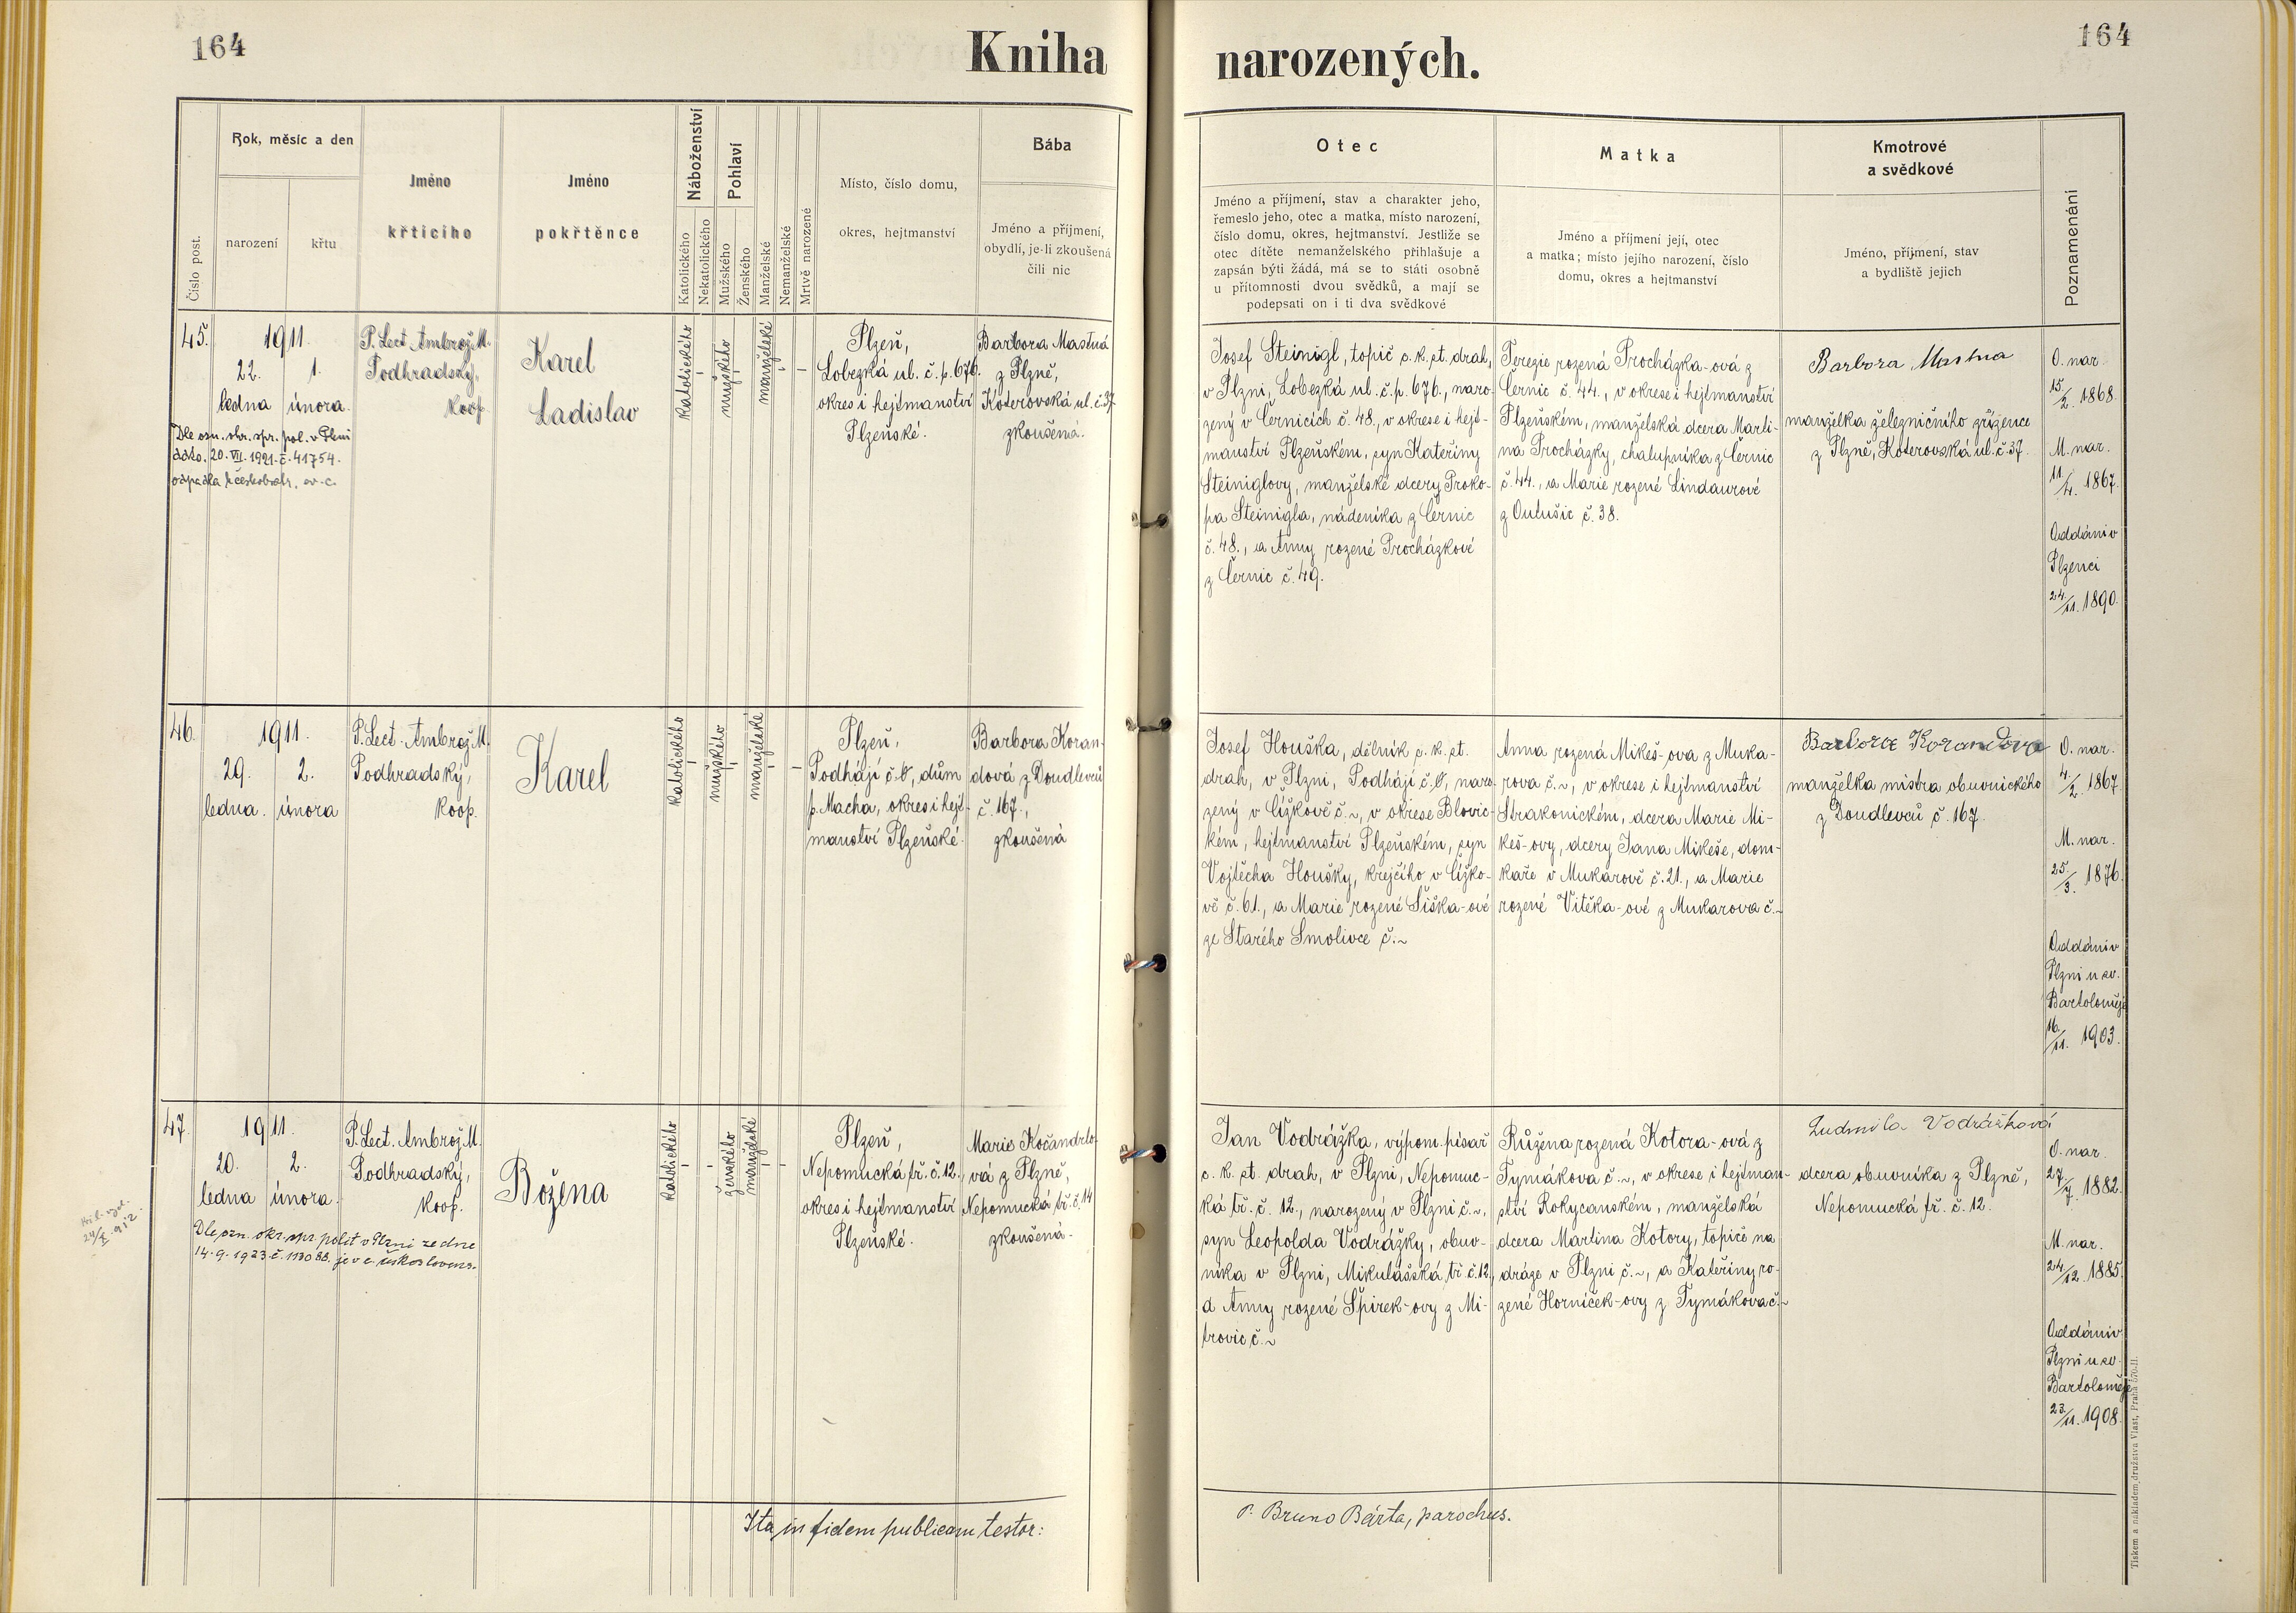 164
Kniha narozených.
164
Číslo post.
Rok, měsíc a den
narození
křtu
Jméno
křtícího
Jméno
pokřtěnce
Náboženství
Katolického
Nekatolického
Pohlaví
Mužského
Ženského
Manželské
Nemanželské
Mrtvě narozené
Místo, číslo domu,
okres, hejtmanství
Bába
Jméno a příjmení,
obydlí, je-li zkoušená
čili nic
Otec
Jméno a příjmení, stav a charakter jeho,
řemeslo jeho, otec a matka, místo narození,
číslo domu, okres, hejtmanství. Jestliže se
otec dítěte nemanželského přihlašuje a
zapsán býti žádá, má se to státi osobně
u přítomnosti dvou svědků, a mají se
podepsati on i ti dva svědkové
Matka
Jméno a příjmení její, otec
a matka; místo jejího narození, číslo
domu, okres a hejtmanství
Kmotrové
a svědkové
Jméno, příjmení, stav
a bydliště jejich
Poznamenání
45.
1911.
22. 1.
ledna února.
Dle ozn. okr. spr. pol. v Plzni
ddto. 20. VII. 1921. č. 41754.
odpadla k českobratr. ev. c.
P. Lect. Ambrož M.
Podhradský,
koop.
Karel
Ladislav
katolického
-
mužského
-
manželské
-
-
Plzeň,
Lobezká ul. č. p. 676.
okres i hejtmanství
Plzeňské.
Barbora Mastná
z Plzně,
Koterovská ul. č. 37
zkoušená.
Josef Steinigl, topič c. k. st. drah,
v Plzni, Lobezká ul. č. p. 676., naro-
zený v Černicích č. 48., v okrese i hejt-
manství Plzeňském, syn Kateřiny
Steiniglovy, manželské dcery Proko-
pa Steinigla, nádeníka z Černic
č. 48., a Anny rozené Procházkové
z Černic č. 49.
Terezie rozená Procházka-ová z
Černic č. 44., v okrese i hejtmanství
Plzeňském, manželská dcera Marti-
na Procházky, chalupníka z Černic
č. 44., a Marie rozené Lindaurové
z Outušic č. 38.
Barbora Mastna
manželka železničního zřízence
z Plzně, Koterovská ul. č. 37.
O. nar.
15./2. 1868.
M. nar.
11/4. 1867.
Oddáni v
Plzenci
24./11. 1890.
46.
1911.
29. 2.
ledna. února
P. Lect. Ambrož M.
Podhradský,
koop.
Karel
katolického
-
mužského
-
manželské
-
-
Plzeň,
Podhájí č. 0, dům
p. Macha, okres i hejt-
manství Plzeňské.
Barbora Koran-
dová z Doudlevců
č. 167.,
zkoušená
Josef Houška, dělník c. k. st.
drah, v Plzni, Podhájí č. 0, naro-
zený v Čížkově č. ~, v okrese Blovic-
kém, hejtmanství Plzeňském, syn
Vojtěcha Houšky, krejčího v Čížko-
vě č. 61., a Marie rozené Šiška-ové
ze Starého Smolivce č. ~
Anna rozená Mikeš-ova z Muka-
rova č. ~, v okrese i hejtmanství
Strakonickém, dcera Marie Mi-
keš-ovy, dcery Jana Mikeše, dom-
kaře v Mukarově č. 21., a Marie
rozené Vitěka-ové z Mukarova č. ~
Barbora Korandova
manželka mistra obuvnického
z Doudlevců č. 167.
O. nar.
4./2. 1867.
M. nar.
25./3. 1876.
Oddáni v
Plzni u sv.
Bartoloměje
16./11. 1903.
47.
1911.
20. 2.
ledna února.
Dle ozn. okr. spr. polit v Plzni ze dne
14. 9. 1923. č. 113088. je v c. českoslovens.
24/X. 912.
P. Lect. Ambrož M.
Podhradský,
koop.
Božena
katolického
-
-
ženského
manželské
-
-
Plzeň,
Nepomucká tř. č. 12.,
okres i hejtmanství
Plzeňské.
Marie Kočandrlo-
vá z Plzně,
Nepomucká tř. č. 14
zkoušená.
Jan Vodrážka, výpom. písař
c. k. st. drah, v Plzni, Nepomuc-
ká tř. č. 12., narozený v Plzni č. ~,
syn Leopolda Vodrážky, obuv-
níka v Plzni, Mikulášská tř. č. 12,
a Anny rozené Špirek-ovy z Mi-
trovic č. ~
Růžena rozená Kotora-ová z
Tymákova č. ~, v okrese i hejtman-
ství Rokycanském, manželská
dcera Martina Kotory, topiče na
dráze v Plzni č. ~, a Kateřiny ro-
zené Horníček-ovy z Tymákova č. ~
Ludmila Vodrážková
dcera obuvníka z Plzně,
Nepomucká tř. č. 12.
O. nar.
27./7. 1882.
M. nar.
24./12. 1885.
Oddáni v
Plzni u sv.
Bartoloměje
23./11. 1908.
Ita in fidem publicam testor:
P. Bruno Bárta, parochus.
Tiskem a nákladem družstva Vlast, Praha 570-II.